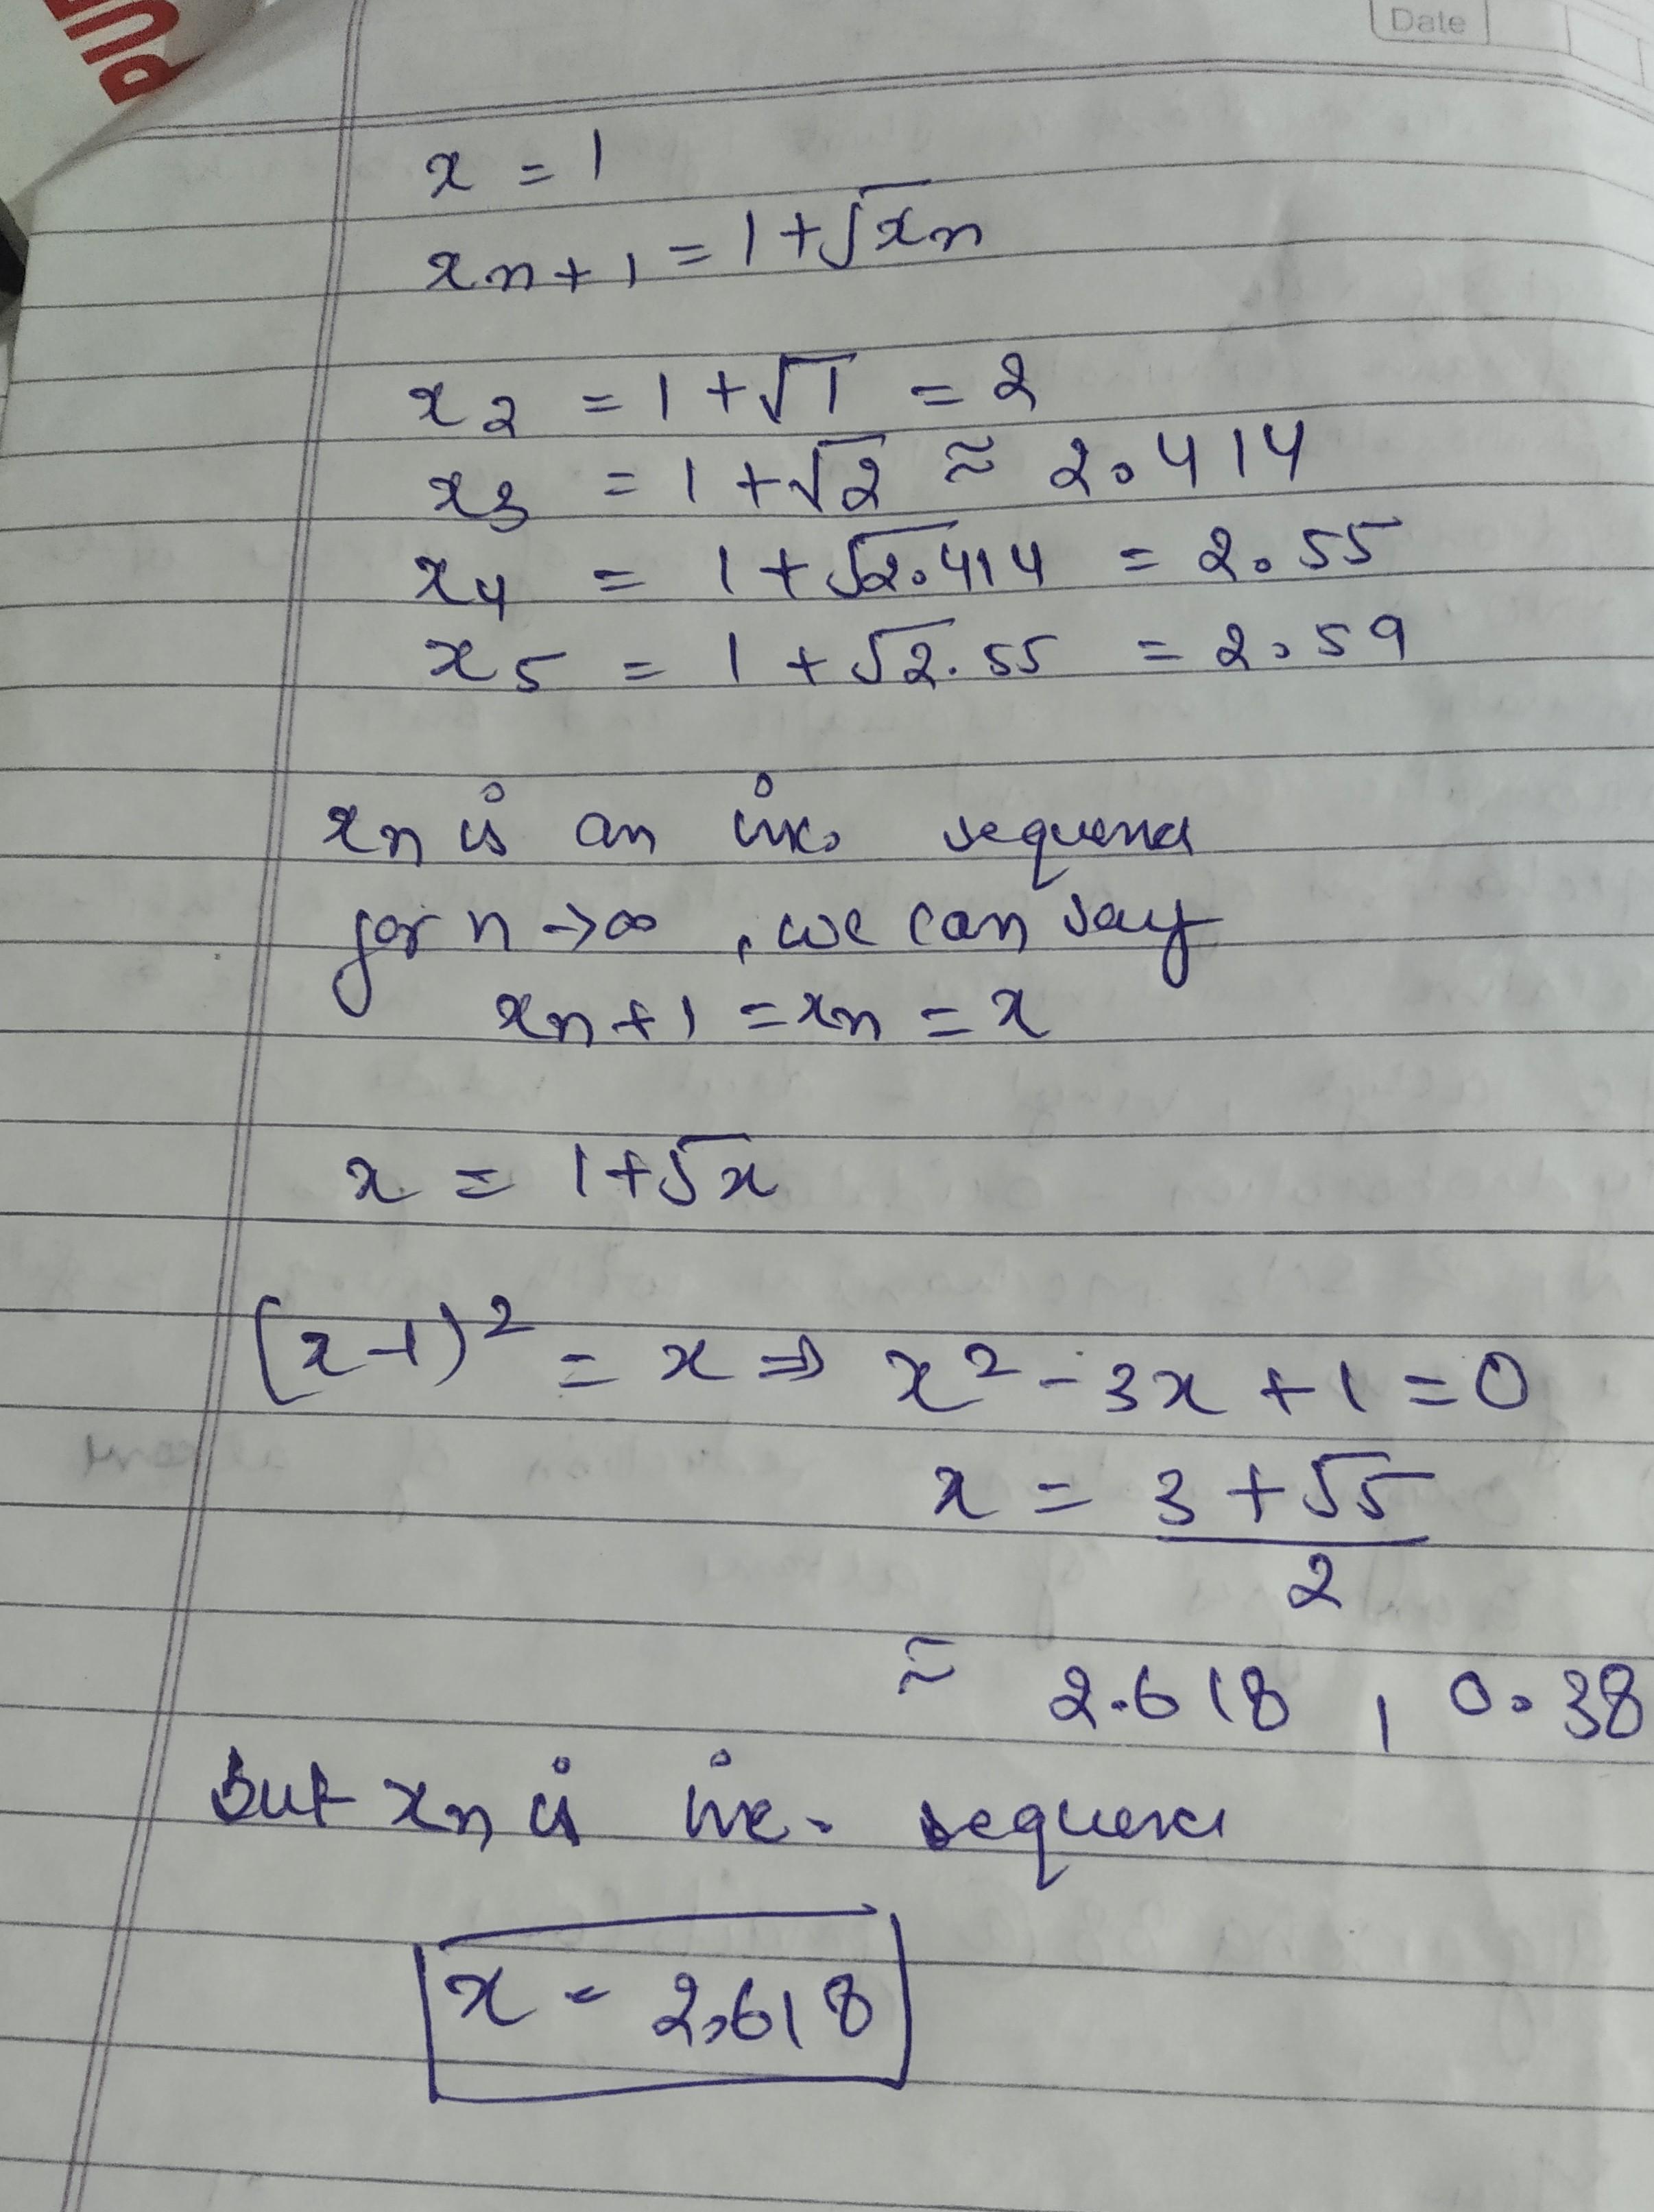 Date
x = 1
xn+1 = 1+√xn
x2 = 1+√1 = 2
x3 = 1+√2 ≈ 2.414
x4 = 1+√2.414 = 2.55
x5 = 1+√2.55 = 2.59
xn is an inc. sequence
for n→∞, we can say
xn+1 = xn = x
x = 1+√x
(x-1)² = x ⇒ x² - 3x + 1 = 0
x = 3+√5
2
≈ 2.618, 0.38
but xn is inc. sequence
x = 2.618